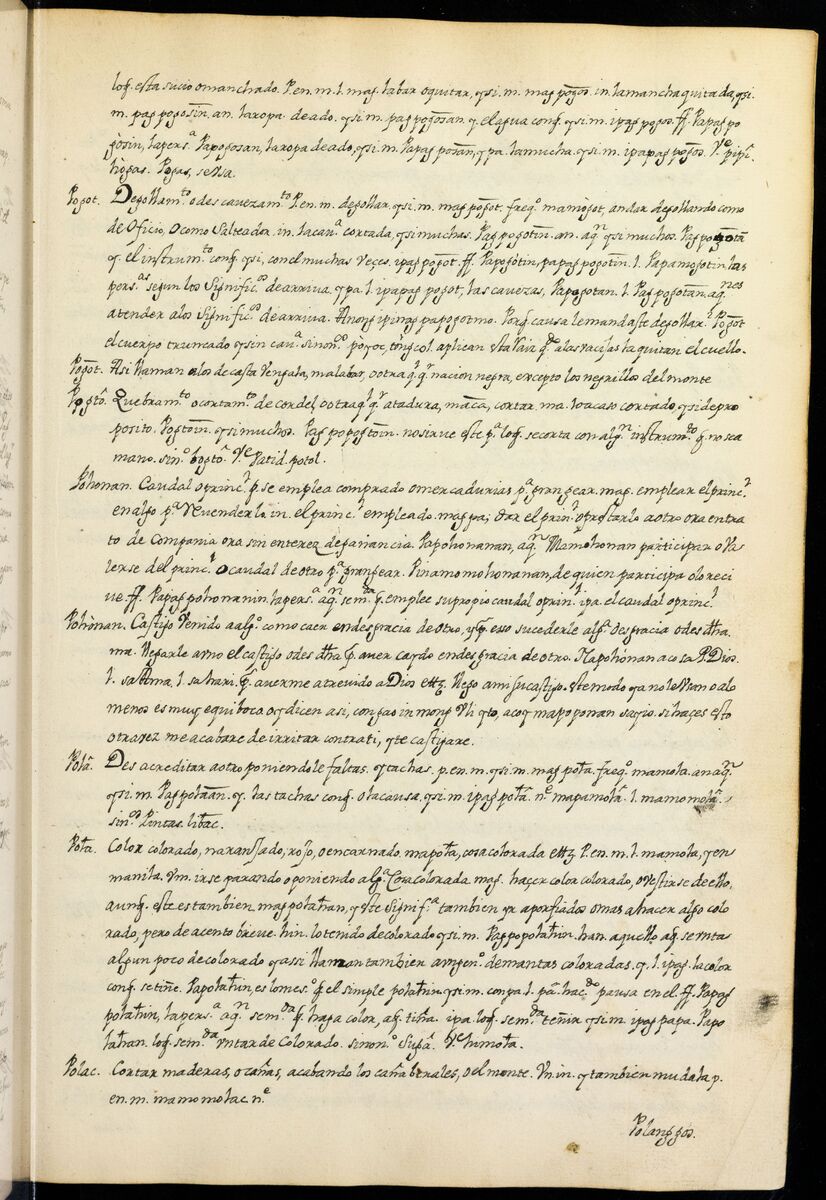 loq̃. esta sucio o manchado. P. en. m. l. mag. labar o quitar, q̃ si. m. mag pog̃os. in. la mancha quitada, q̃ si.
m. pag pogosin. an. la ropa de ado. q̃ si. m. pag pogosan. y el agua conq̃. q̃ si. m. ipag pogos. ff. Papag po
gòsin, la pers.ª Papogosan, la ropa de ado, q̃ si. m. Papag posan, q̃ pa. la mucha. q̃ si. m. ipapag pogos. V.e pipî.
hògas. Pogas, se va.
Pogot. Degollam.to o descavezam.to P. en m. degollar. q̃ si. m. mag pogot. freq.º mamògot, andar degollando como
de oficio, o como salteador. in. la cav.ª cortada, q̃ si muchas. Pag pogotin. an. aq.n q̃ si muchos. Pag pogotã
y. el instrum.to conq̃. q̃ si, con el muchas veçes. ipag pogot. ff. Papogòtin, papag pogotin. l. Papamogotin, las
pers.as segun los signific.os de arriva, q̃ pa. l. ipapag pogot, las cavezas, Papogotan. l. Pag pogotan. aq.nes
atender a los signific.os de arriva. Anong ipinag papogotmo. Porq̃ causa le mandaste degollar. Pogot
el cuerpo truncado q̃ sin cav.ª sinon.º pòyoc, tongcol. aplican esta raiz q.do a las vacijas la quitan el cuello.
Pogot. Asi llaman a los de casta Vengala, malabar, o otra q.l q.r nacion negra, excepto los negrillos del monte
Pogtô. Quebram.to o cortam.to de cordel, o otra q.l q.r atadura, maca, cortar. ma. lo acaso cortado, q̃ si de pro
posito. Pogtoin. q̃ si muchos. Pag pogogtoin. no sirve este p.ª loq̃. se corta con alg.n instrum.to q̃. no sea
mano. sin.º bogtô. V.e Patid. potol.
Pohonan. Caudal o princ.l q̃. se emplea comprado o mercadurias p.ª grangear. mag. emplear el princ.l
en algo p.ª revenderlo in. el princ.l empleado. magpa, dar el prin.l o prestarlo a otro ora en tra
to de compania ora sin enterez de ganancia. Papohonanan, aq.n Mamohonan participar o va
lerse del princ.l o caudal de otro p.ª grangear. Pinamomohonanan, de quien participa o lo reci
ve. ff. Papag pohonanin. la pers.ª aq.n se m.da q̃. emplee su propio caudal o prin.l ipa. el caudal o princ.l
Pohònan. Castigo venido a alg.º como caer en desgracia de otro, y q̃. esso sucederle alg.ª desgracia o desdha.
ma. llegarle a uno el castigo o desdha q̃. aver caydo en desgracia de otro. Napohònan aco sa P. Dios.
l. sa Ama, l. sa hari. q̃. averme atrevido a Dios ett.ª llego a mi su castigo. este modo ya no le usan o a lo
menos es muy equiboco o y dicen asi, con gao in mong uli yto, acoy mapopoonan sa iyo. si haçes esto
otra vez me acabare de irritar contra ti, y te castigare.
Polâ. Desacreditar a otro poniendole faltas. y tachas. p. en. m. q̃ si. m. mag pola. freq.º mamola. an aq.n
q̃ si. m. Pag polaan. y. las tachas conq̃. o la causa, q̃ si. m. ipag polâ n.e mapamolâ. l. mamomolâ.
sin.º Pintas. libac.
Pola. Color colorado, naransado, rojo, o encarnado. mapola, cosa colorada ett.ª P. en. m. l. mamola, q̃ en
manila. Vm. irse parando o poniendo alg.ª cosa colorada mag. haçer color colorado, o vestirse de ello,
aunq̃. este es tambien mag polahan, y este signif.ª tambien yr a porfiados o mas a hacer algo colo
rado, pero de acento breve. hin. lo tenido de colorado q̃ si. m. Pag popolahin. han. aquello aq̃. se unta
algun poco de colorado y assi llaman tambien a un gen.º de mantas coloradas. y. l. ipag. la color
conq̃ se tiñe. Papolahin, es lo mes.º q̃ el simple polahin. q̃ si. m. con pa. l. pa. hac.do pausa en el. ff. Papag
polahin, la pers.ª aq.n se m.da q̃. haga color, aq̃. tiña. ipa. loq̃. se m.da teñir q̃ si. m. ipag papa. Papo
lahan. loq̃. se m.da untar de colorado. sinon.º Sagâ. V.e himola.
Polac. Cortar maderas, o cañas, acabando los cañaberales, o el monte. Vn. in. y tambien mudala p.
en. m. mamomolac. n.e
Polanggos.